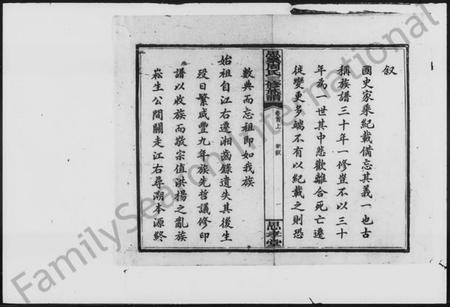 叙
國史家乘紀載備忘其義一也古
稱族譜三十年一修豈不以三十
年為一世其中悲歡離合死亡遷
徙變更多端不有以紀載之則恐
周氏三修族譜
卷首
新叙
一
思孝堂
數典而忘祖即如我族
始祖自江右遷湘齒錄遺失其後生
歿日繁咸豐九年族先哲議修印
譜以收族而敬宗值洪楊之亂族
崧生公間關走江右尋溯本源終
FamilySearch International